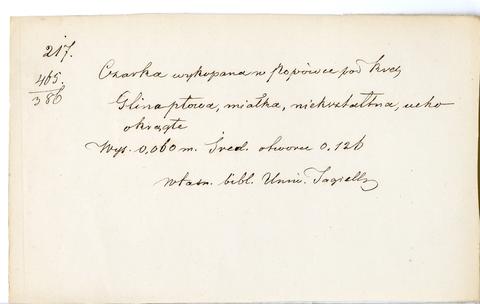 217.
465.
386
Czarka wykopana w Popówce pod
Glina płowa, miałka, niekształtna, ucho
okrągłe
Wys. 0,060 m. Śred. otworu 0.126
własn. bibl. Uniw. Jagiell.